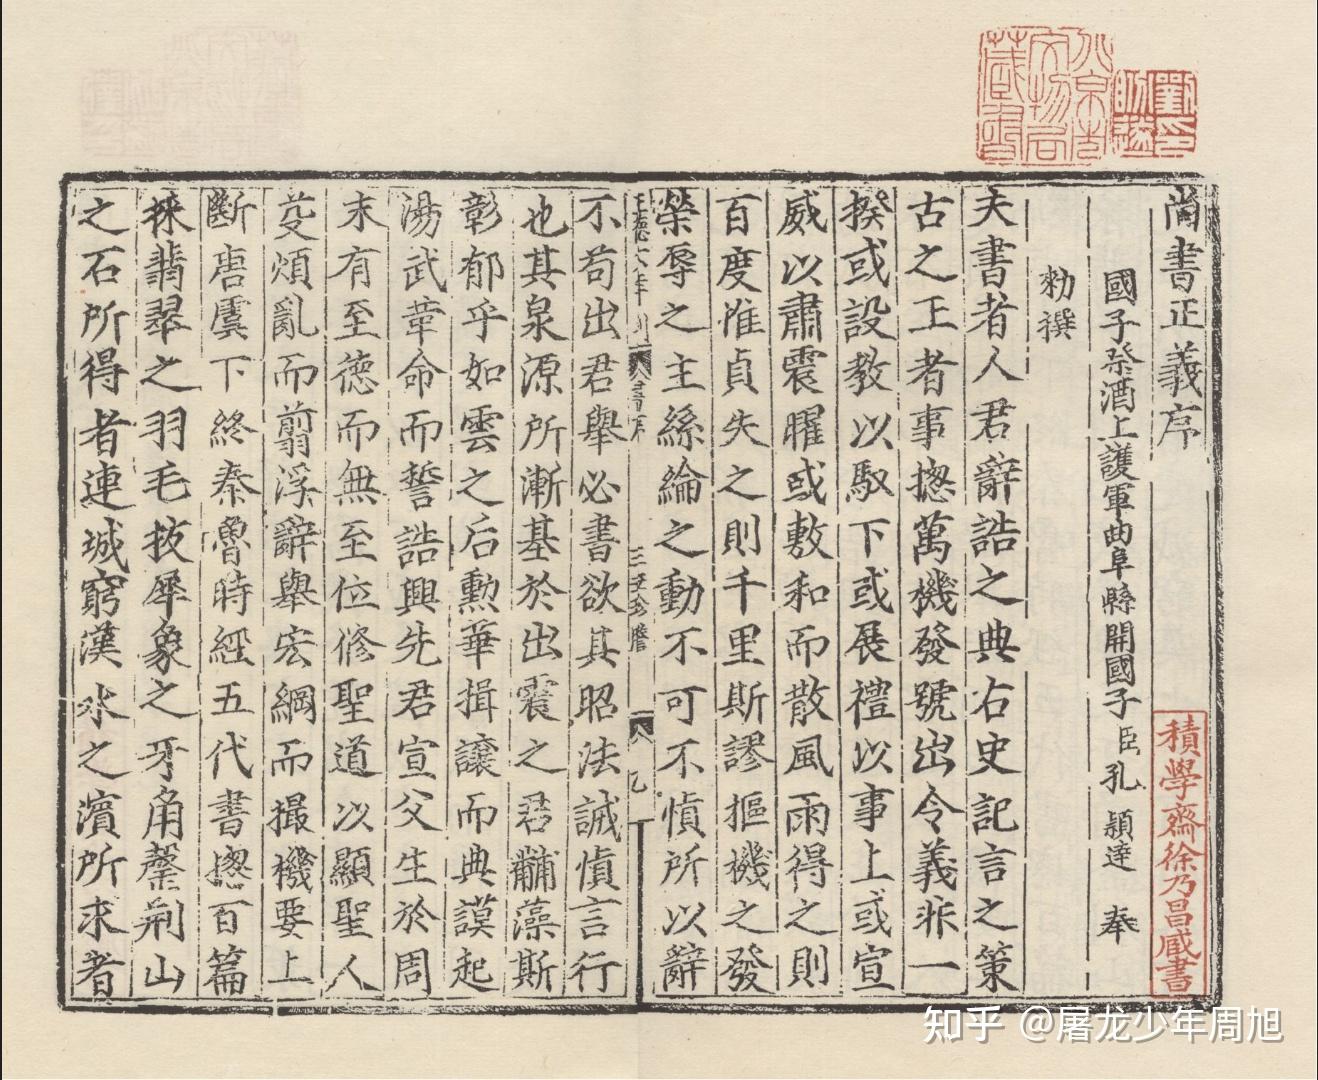 尚書正義序
國子祭酒上護軍曲阜縣開國子臣孔穎達奉
勑撰
夫書者人君辭誥之典右史記言之策
古之王者事揔萬機發號出令義非一
揆或設教以馭下或展禮以事上或宣
威以肅震曜或敷和而散風雨得之則
百度惟貞失之則千里斯謬樞機之發
榮辱之主絲綸之動不可不慎所以辭
不苟出君舉必書欲其昭法誡慎言行
也其泉源所漸基於出震之君黼藻斯
彰郁乎如雲之后勲華揖讓而典謨起
湯武革命而誓誥興先君宣父生於周
末有至德而無至位修聖道以顯聖人
芟煩亂而翦浮辭舉宏綱而撮機要上
斷唐虞下終秦魯時經五代書揔百篇
採翡翠之羽毛拔犀象之牙角罄荊山
之石所得者連城窮漢水之濱所求者
積學齋徐乃昌藏書
北京市文物局藏書
知乎 @屠龙少年周旭